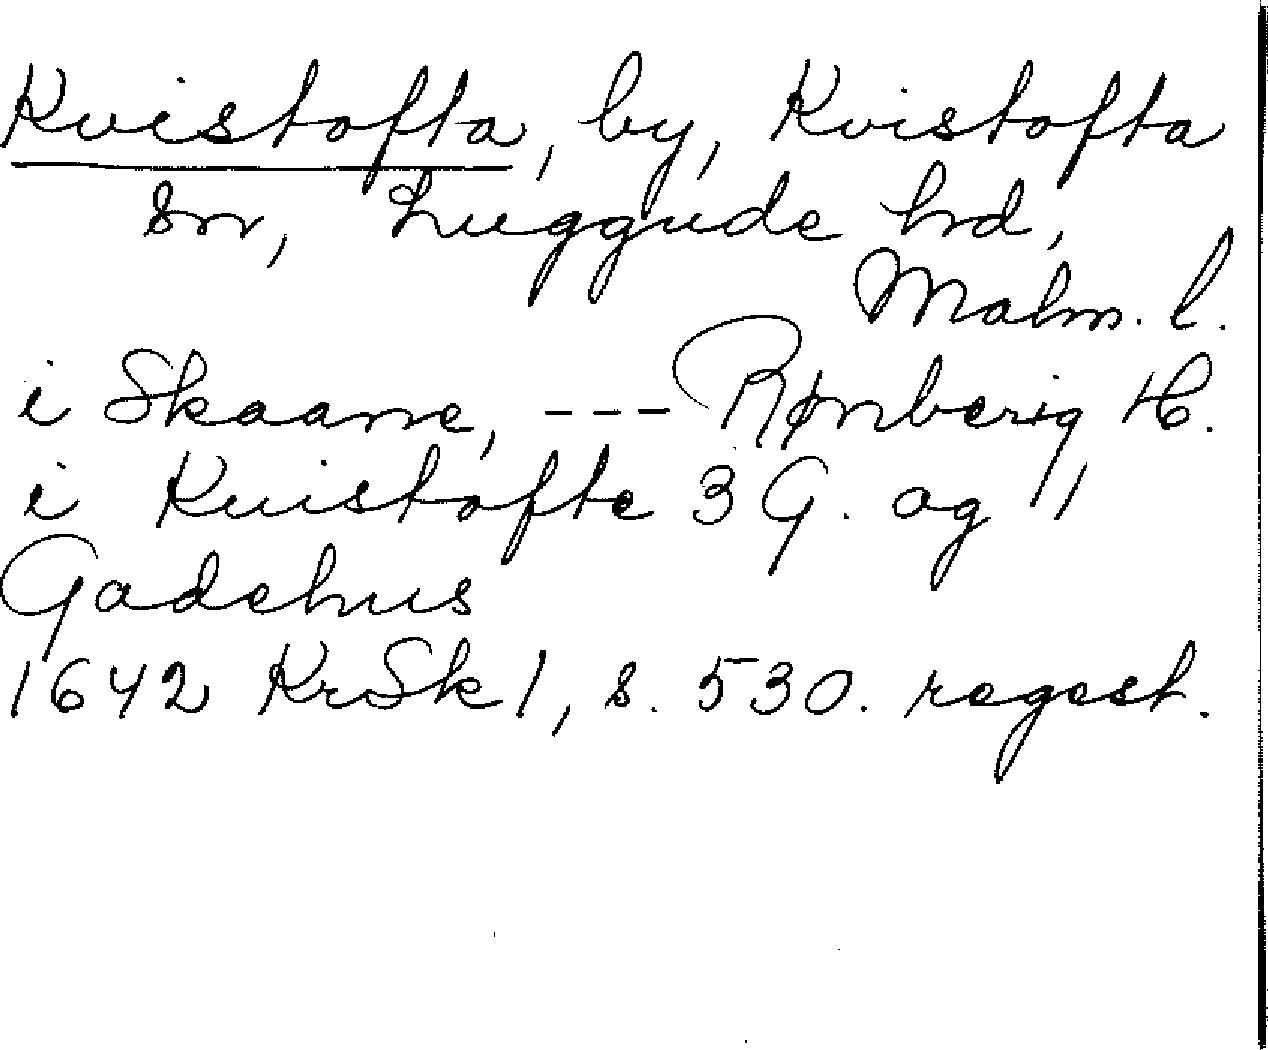 Kvistofta, by, Kvistofta
sn, Luggude hrd,
Malm. l.
i Skaane, --- Rønberig H.
i Kuistofte 3 G. og 11
Gadehus
1642 KrSk 1, s. 530. regest.